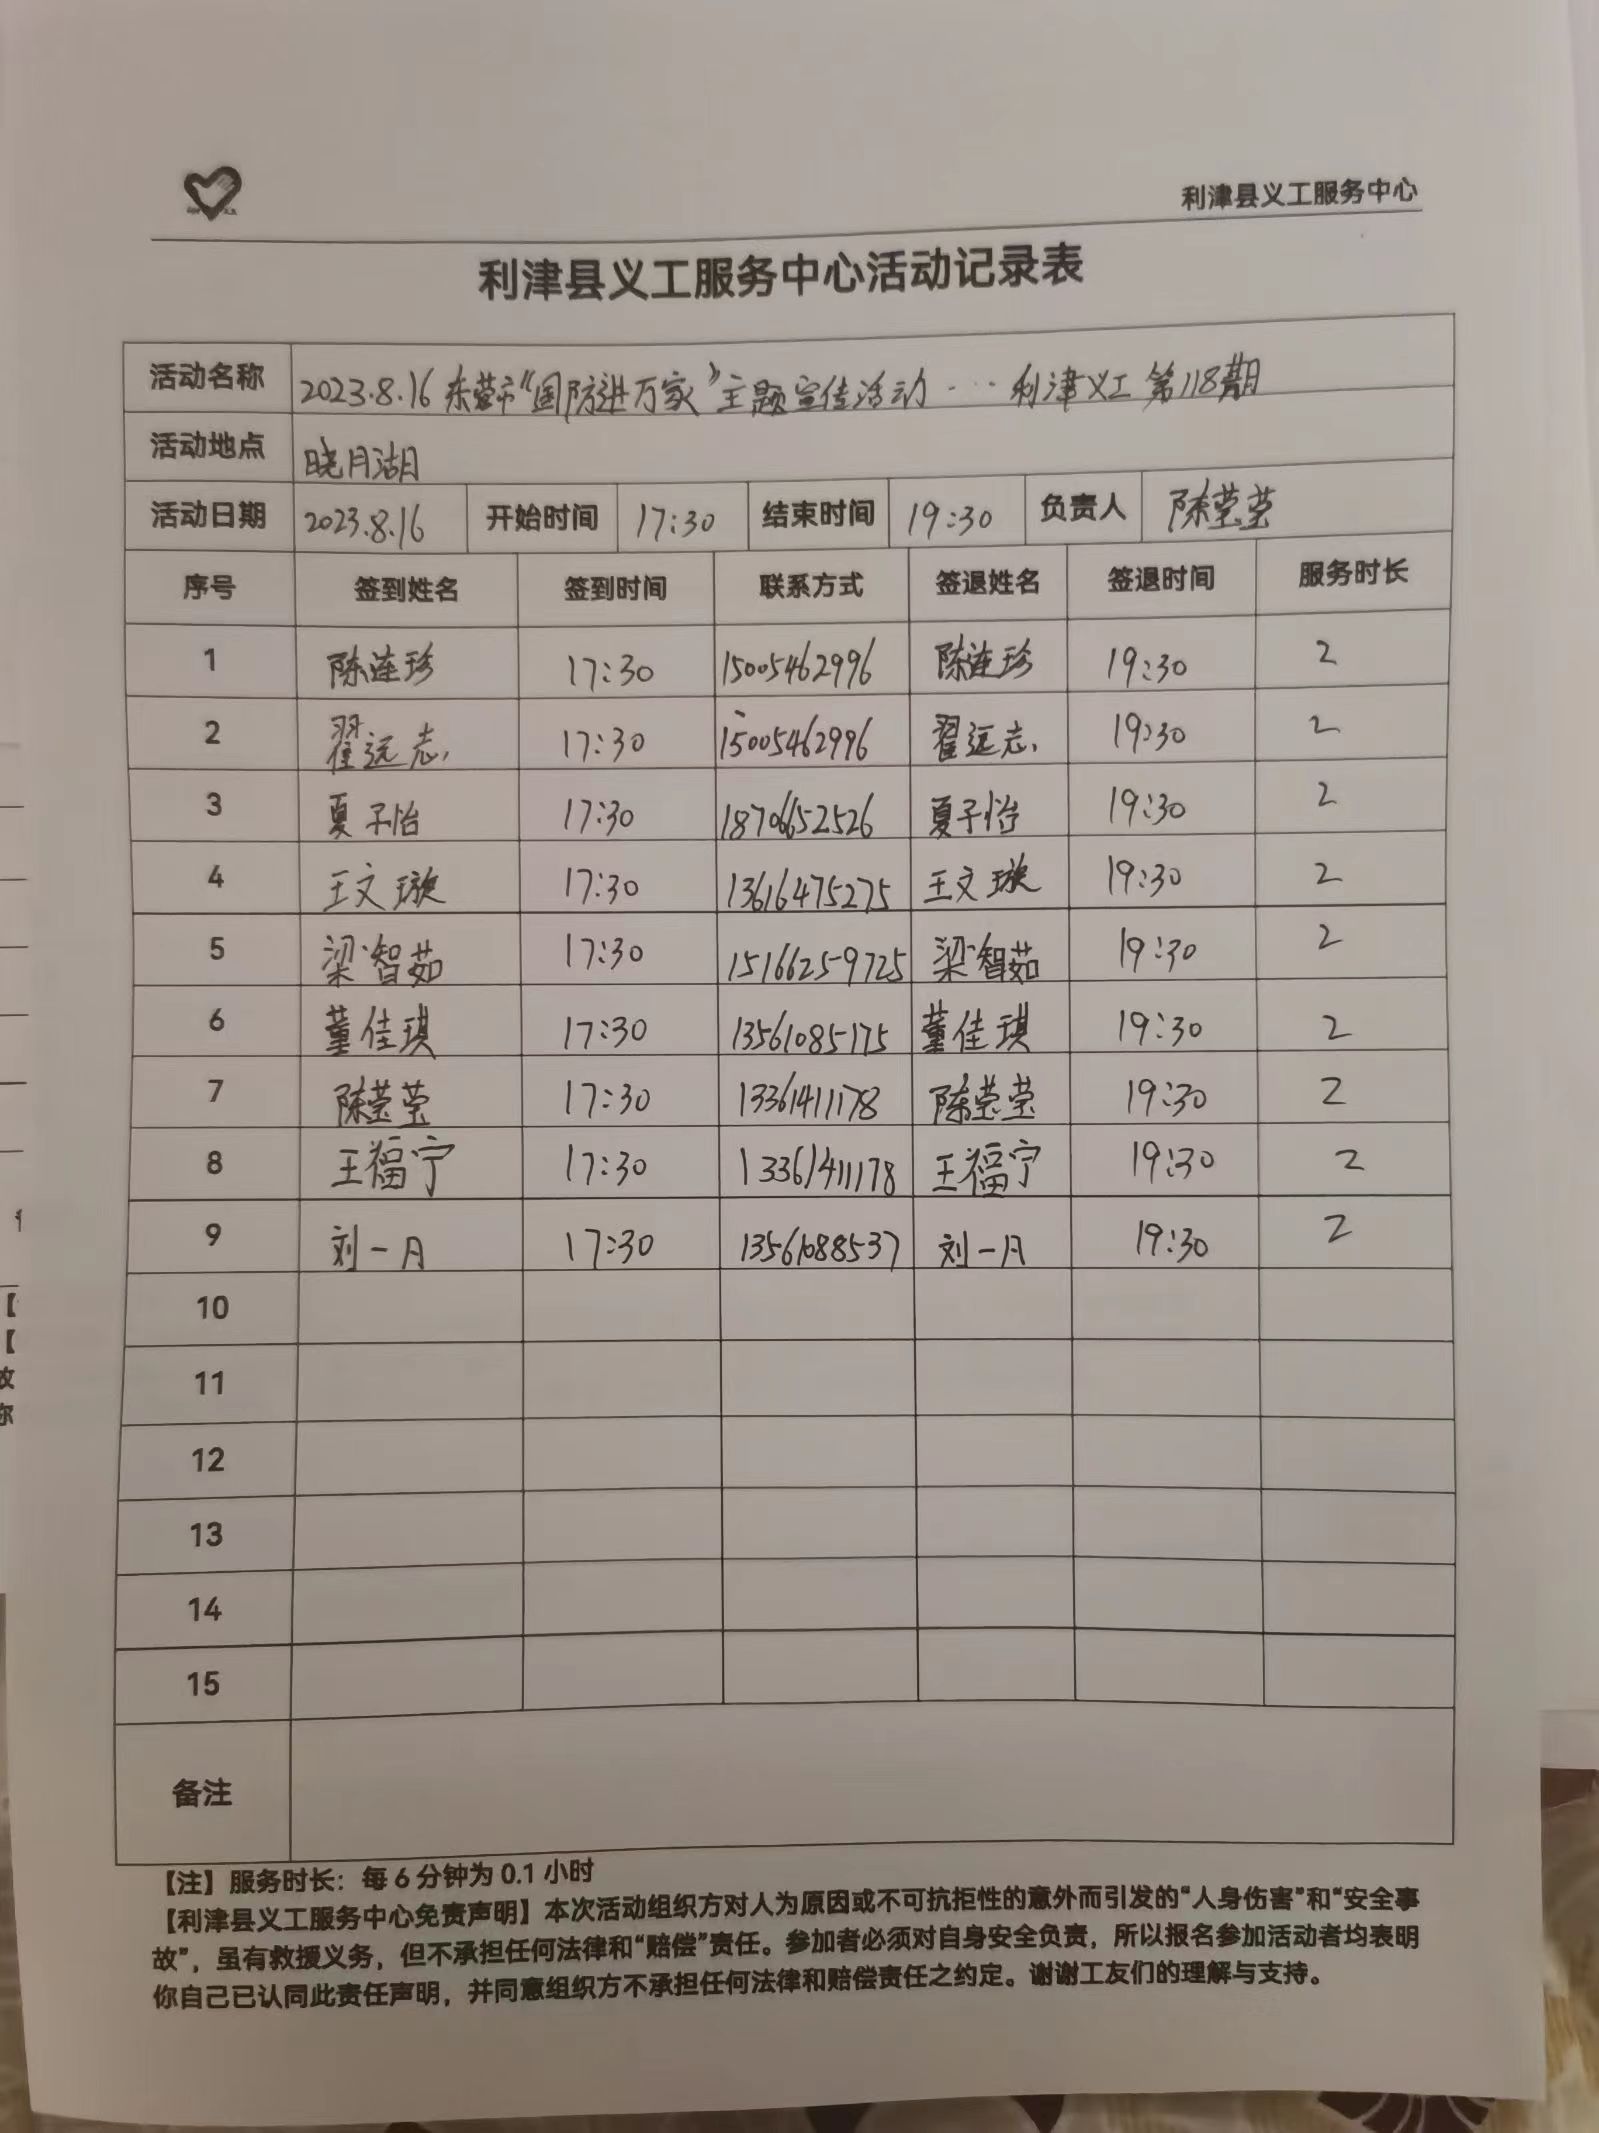 利津县义工服务中心
利津县义工服务中心活动记录表
活动名称 2023.8.16东营市“国防进万家”主题宣传活动…利津义工第118期
活动地点 晓月湖
活动日期 2023.8.16 开始时间 17:30 结束时间 19:30 负责人 陈莹莹
序号 签到姓名 签到时间 联系方式 签退姓名 签退时间 服务时长
1 陈连珍 17:30 15005462996 陈连珍 19:30 2
2 翟远志 17:30 15005462996 翟远志 19:30 2
3 夏子怡 17:30 18706652526 夏子怡 19:30 2
4 王文璇 17:30 13616475275 王文璇 19:30 2
5 梁智茹 17:30 15166259725 梁智茹 19:30 2
6 董佳琪 17:30 13561085175 董佳琪 19:30 2
7 陈莹莹 17:30 13361411178 陈莹莹 19:30 2
8 王福宁 17:30 13361411178 王福宁 19:30 2
9 刘一月 17:30 13561088537 刘一月 19:30 2
10
11
12
13
14
15
备注
【注】服务时长：每6分钟为0.1小时
【利津县义工服务中心免责声明】本次活动组织方对人为原因或不可抗拒性的意外而引发的“人身伤害”和“安全事
故”，虽有救援义务，但不承担任何法律和“赔偿”责任。参加者必须对自身安全负责，所以报名参加活动者均表明
你自己已认同此责任声明，并同意组织方不承担任何法律和赔偿责任之约定。谢谢工友们的理解与支持。